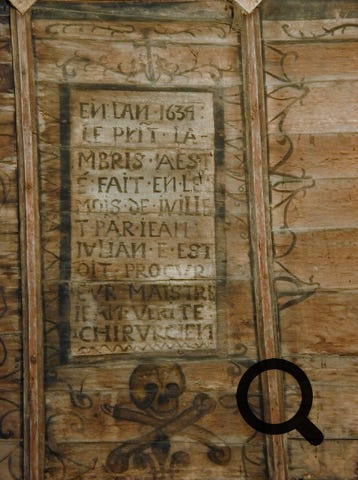 EN LAN · 1634 ·
LE PRIT · LA-
MBRIS · A EST
É · FAIT · EN · LE
MOIS · DE · IVILLE
T PAR · IEAN
IVLIAN · E · EST
OIT · PROCVR
EVR MAISTRE
IEAN VERITE
· CHIRVRGIEN